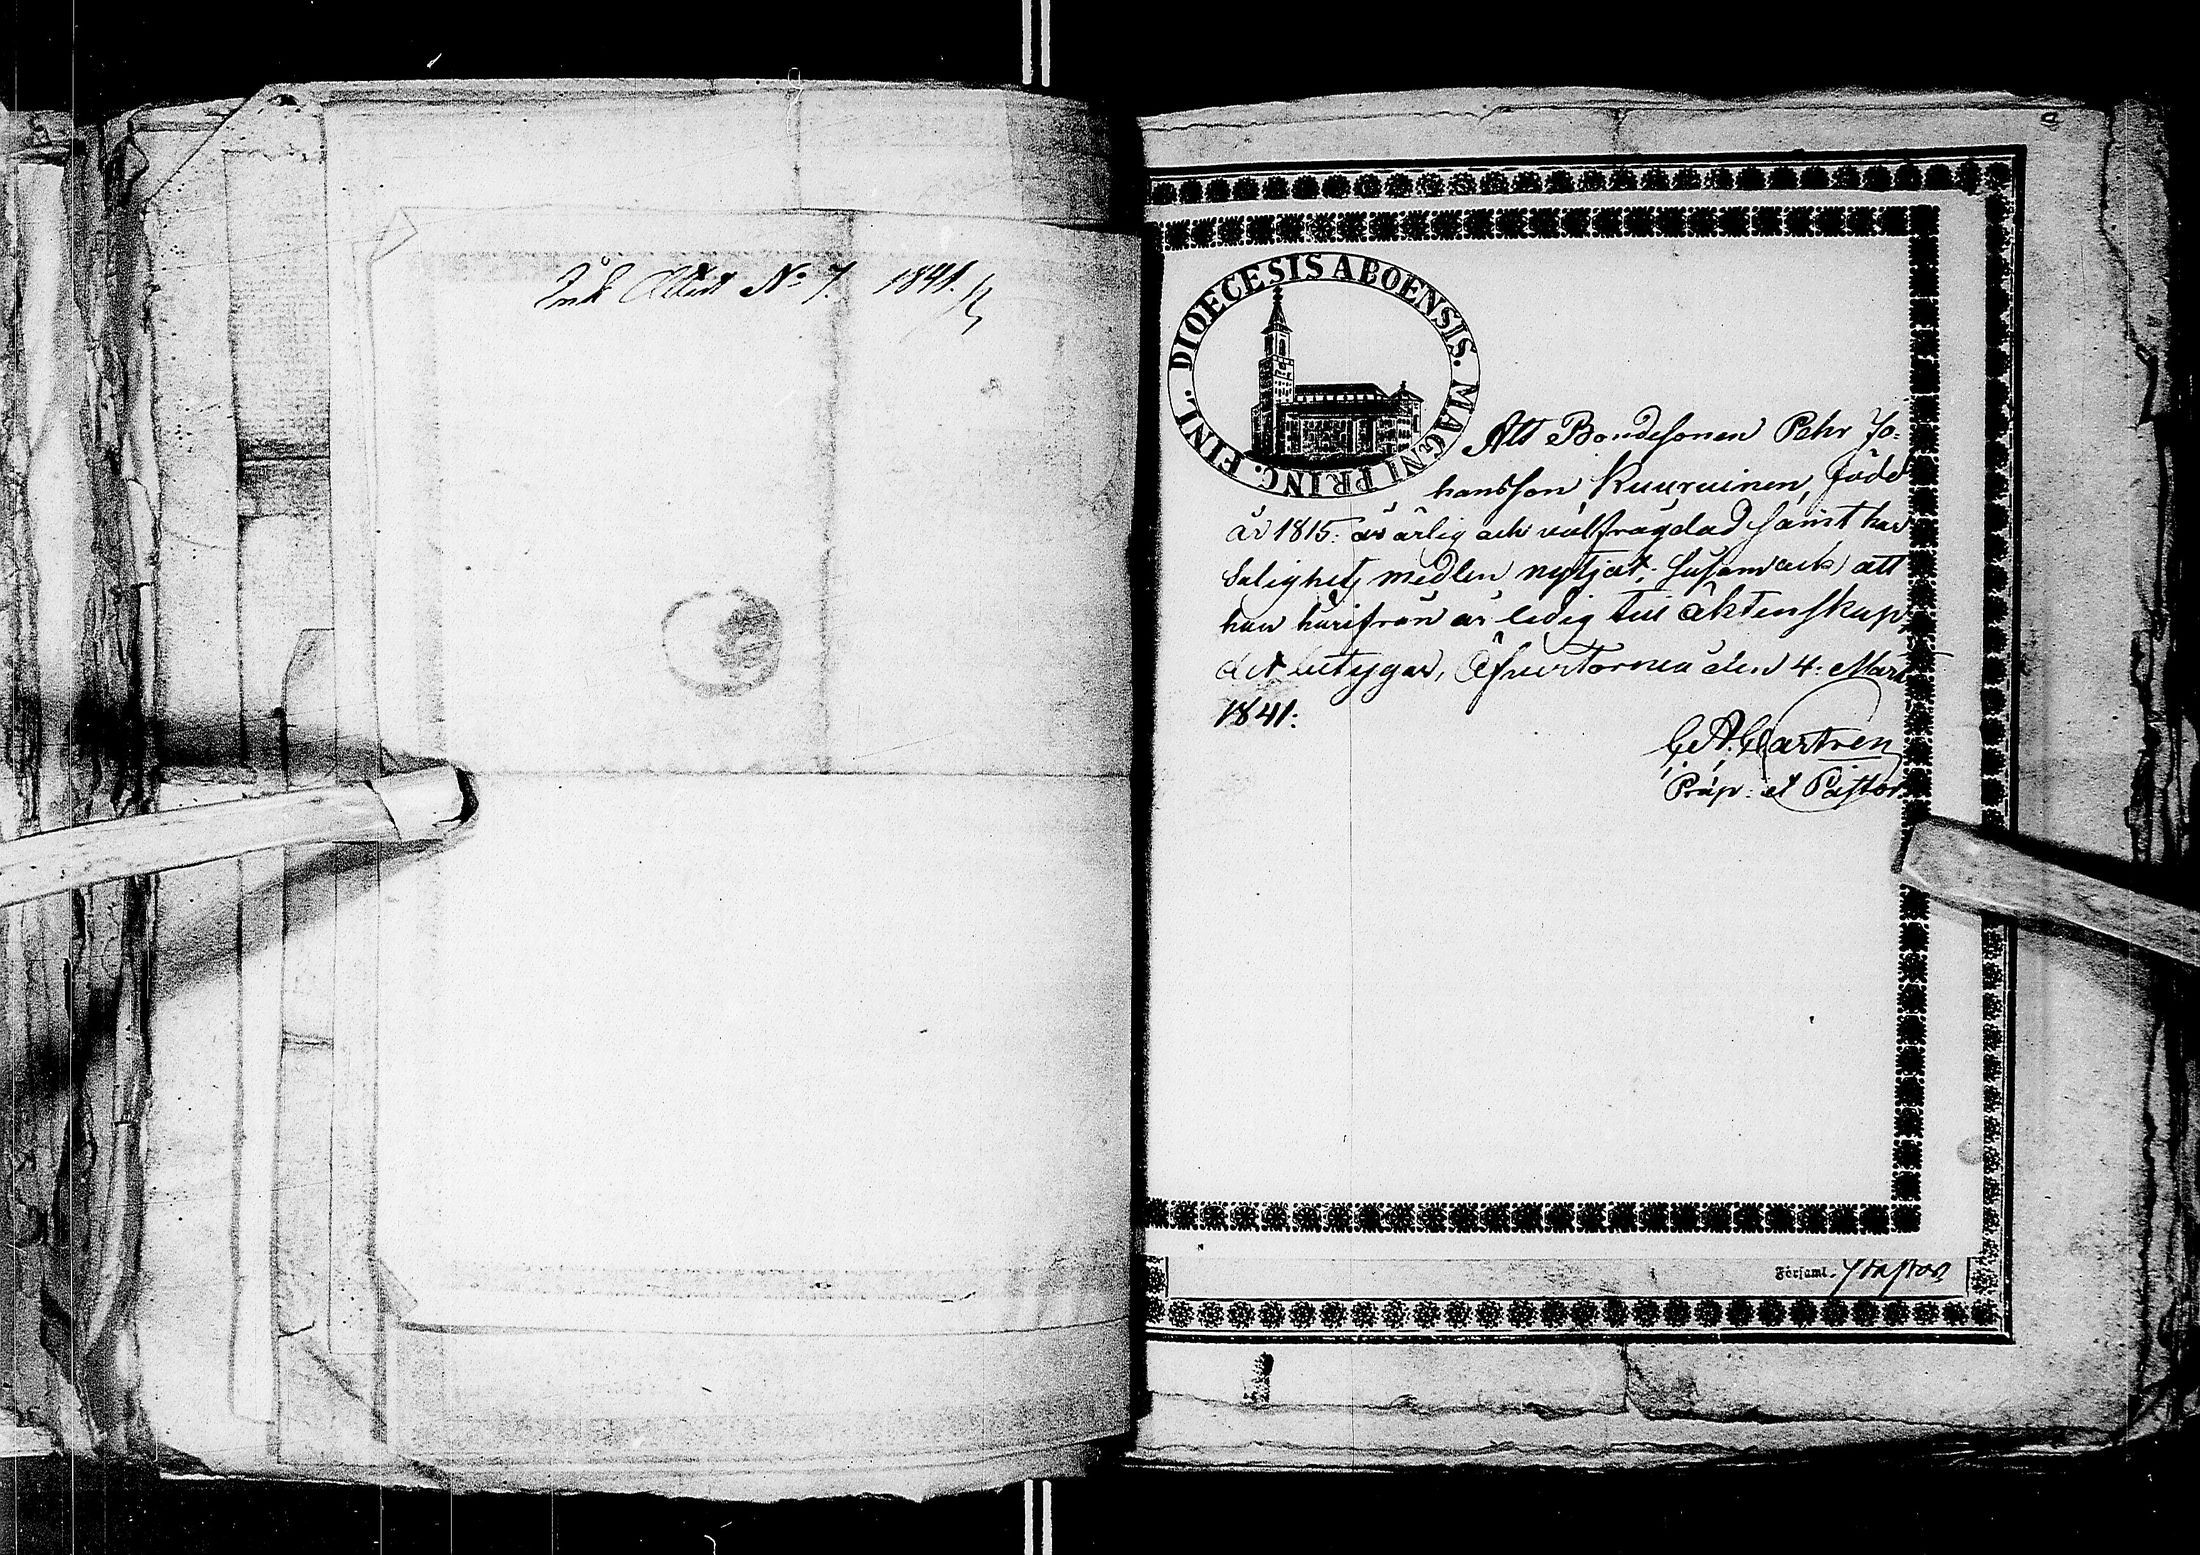 Ink Attest No 7. 1841.
DIOECESIS ABOENSIS. MAGNI PRINC. FINL.
Att Bondesonen Pehr Jo=
hansson Kuuruinen, född
år 1815: är ärlig och välfrägdad samt har
Salighets medlen nytjat; Susom ock att
han härifrån är ledig till äktenskap,
det betygar, Öfvertornea den 4: Mars
1841:
C. A. Castren
Præp: et Pastor.
Församl.